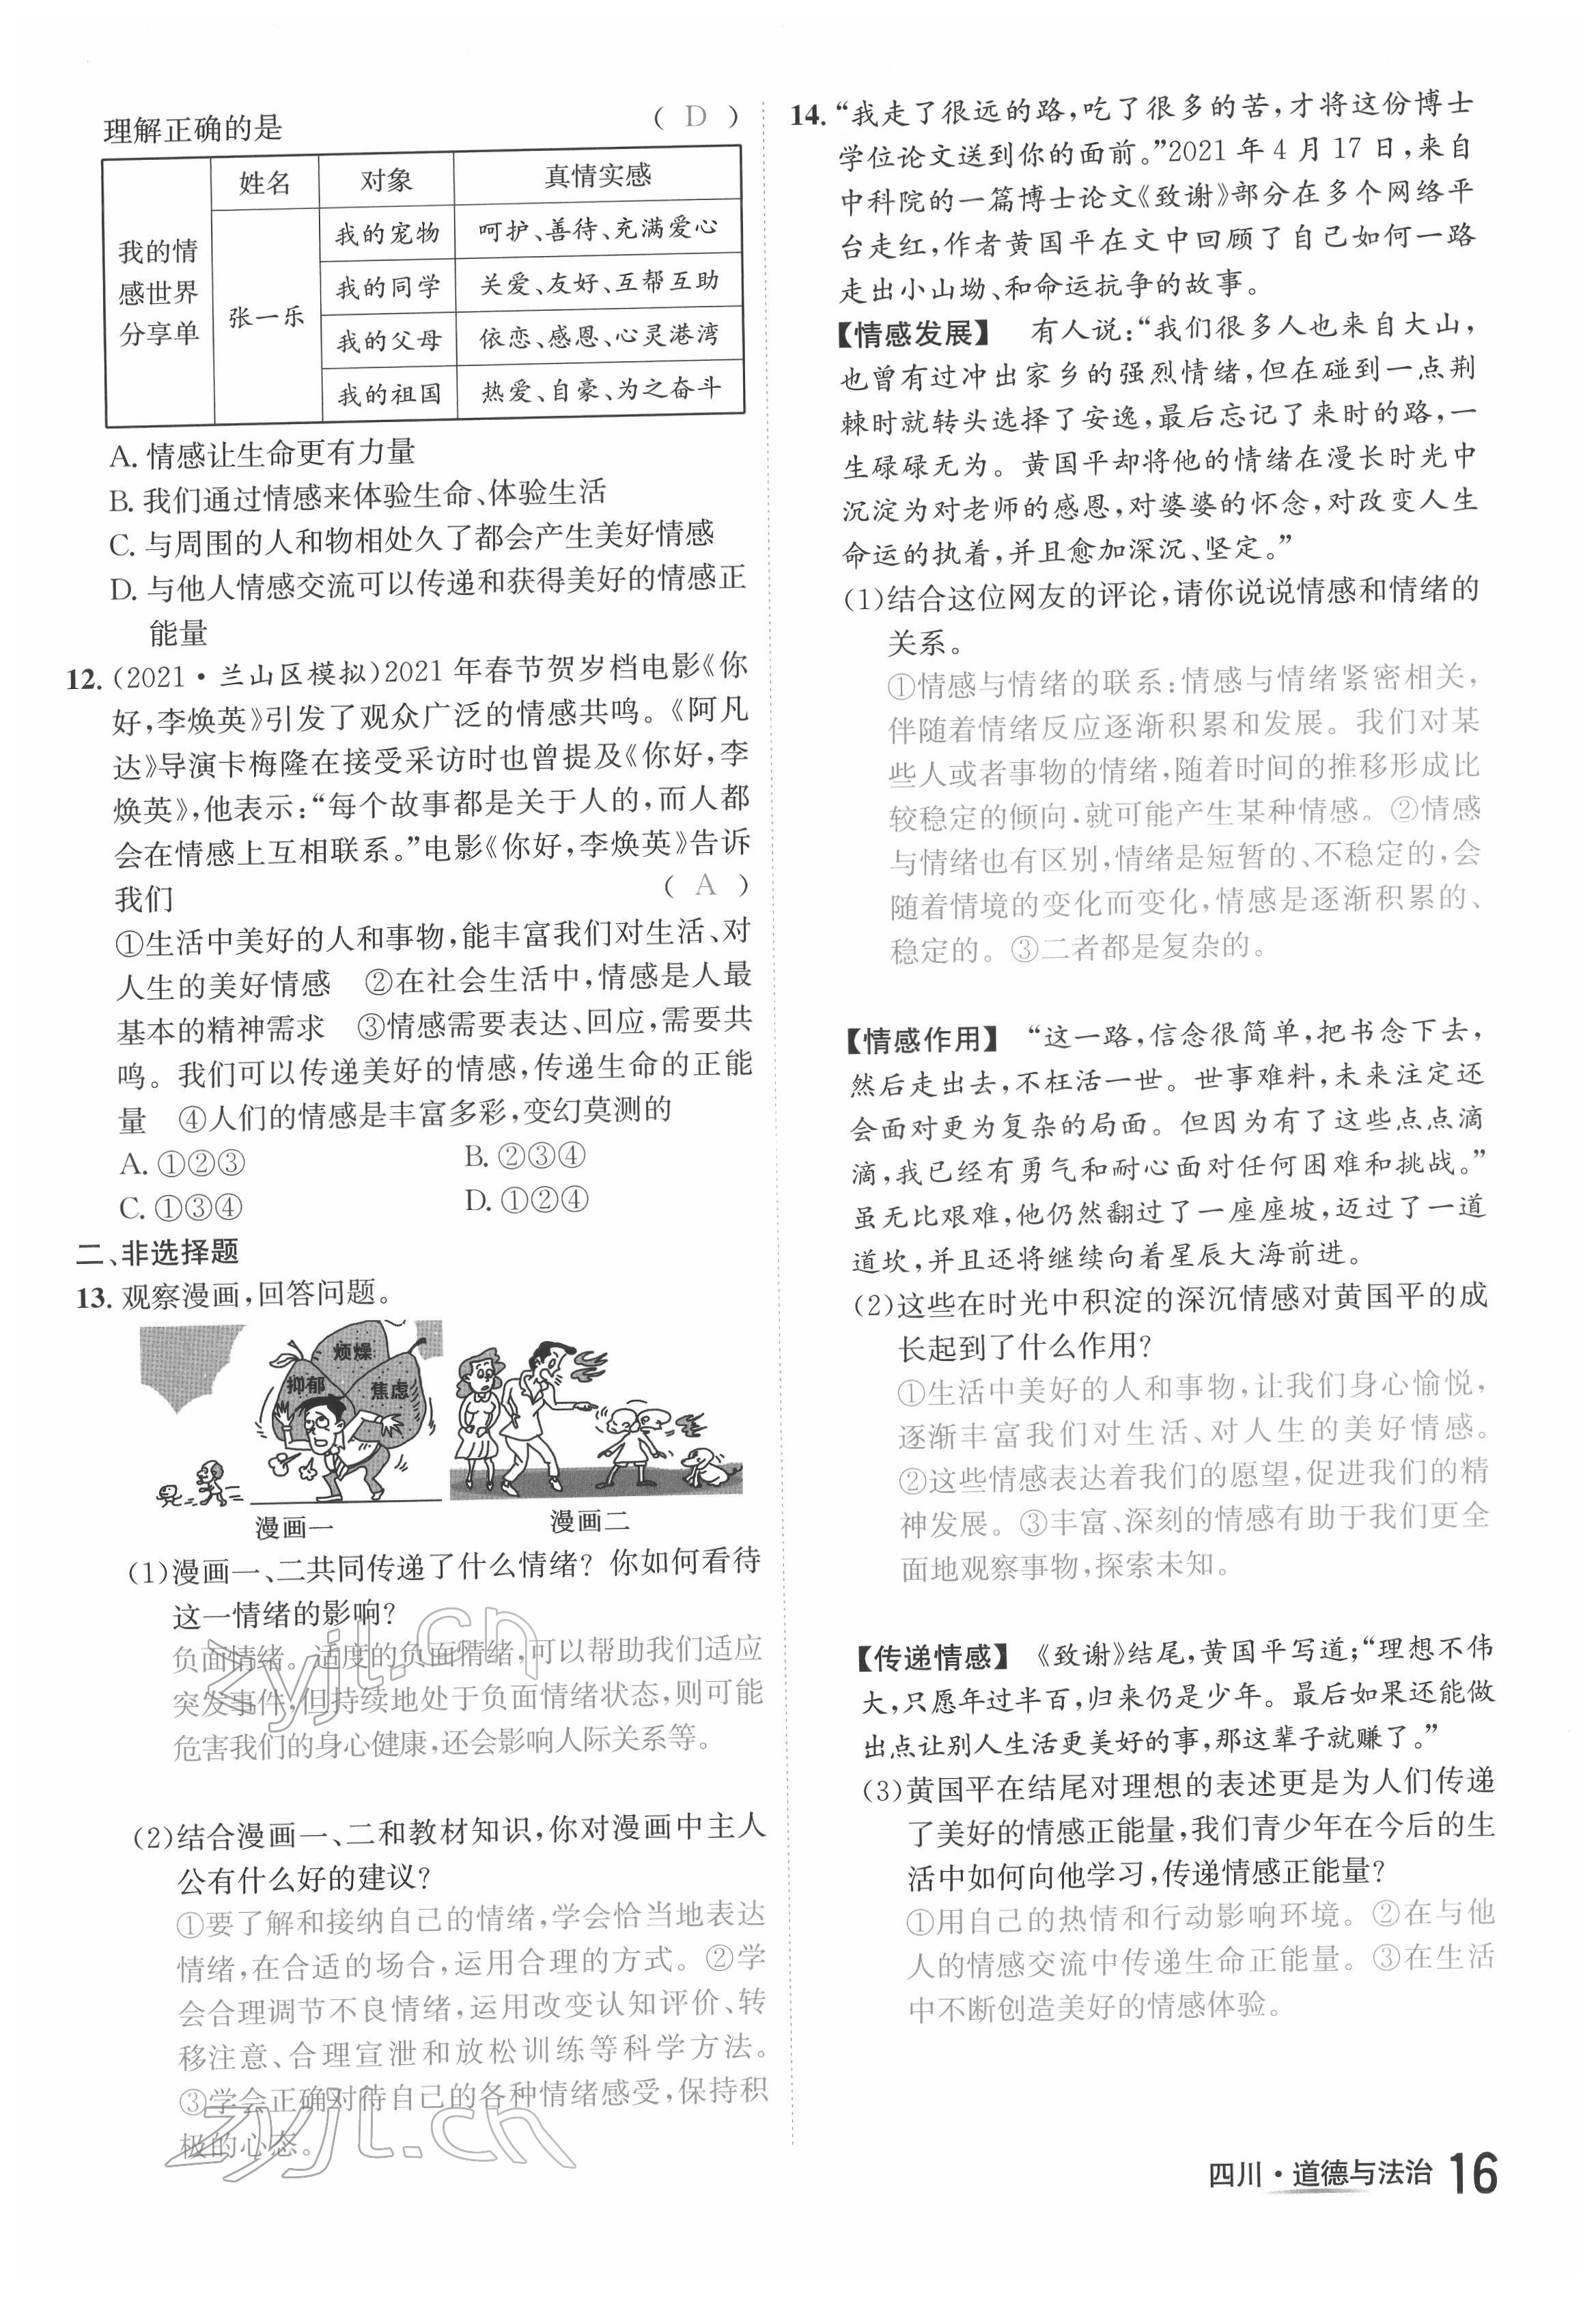 理解正确的是 ( D )
姓名 对象 真情实感
我的宠物 呵护、善待、充满爱心
我的情感世界分享单
张一乐
我的同学 关爱、友好、互帮互助
我的父母 依恋、感恩、心灵港湾
我的祖国 热爱、自豪、为之奋斗
A. 情感让生命更有力量
B. 我们通过情感来体验生命、体验生活
C. 与周围的人和物相处久了都会产生美好情感
D. 与他人情感交流可以传递和获得美好的情感正
能量
12. (2021·兰山区模拟)2021年春节贺岁档电影《你
好,李焕英》引发了观众广泛的情感共鸣。《阿凡
达》导演卡梅隆在接受采访时也曾提及《你好,李
焕英》,他表示:“每个故事都是关于人的,而人都
会在情感上互相联系。”电影《你好,李焕英》告诉
我们 ( A )
①生活中美好的人和事物,能丰富我们对生活、对
人生的美好情感 ②在社会生活中,情感是人最
基本的精神需求 ③情感需要表达、回应,需要共
鸣。我们可以传递美好的情感,传递生命的正能
量 ④人们的情感是丰富多彩,变幻莫测的
A. ①②③ B. ②③④
C. ①③④ D. ①②④
二、非选择题
13. 观察漫画,回答问题。
烦燥
抑郁 焦虑
漫画一 漫画二
(1)漫画一、二共同传递了什么情绪? 你如何看待
这一情绪的影响?
负面情绪。适度的负面情绪,可以帮助我们适应
突发事件,但持续地处于负面情绪状态,则可能
危害我们的身心健康,还会影响人际关系等。
(2)结合漫画一、二和教材知识,你对漫画中主人
公有什么好的建议?
①要了解和接纳自己的情绪,学会恰当地表达
情绪,在合适的场合,运用合理的方式。②学
会合理调节不良情绪,运用改变认知评价、转
移注意、合理宣泄和放松训练等科学方法。
③学会正确对待自己的各种情绪感受,保持积
极的心态。
14. “我走了很远的路,吃了很多的苦,才将这份博士
学位论文送到你的面前。”2021年4月17日,来自
中科院的一篇博士论文《致谢》部分在多个网络平
台走红,作者黄国平在文中回顾了自己如何一路
走出小山坳、和命运抗争的故事。
【情感发展】 有人说:“我们很多人也来自大山,
也曾有过冲出家乡的强烈情绪,但在碰到一点荆
棘时就转头选择了安逸,最后忘记了来时的路,一
生碌碌无为。黄国平却将他的情绪在漫长时光中
沉淀为对老师的感恩,对婆婆的怀念,对改变人生
命运的执着,并且愈加深沉、坚定。”
(1)结合这位网友的评论,请你说说情感和情绪的
关系。
①情感与情绪的联系:情感与情绪紧密相关,
伴随着情绪反应逐渐积累和发展。我们对某
些人或者事物的情绪,随着时间的推移形成比
较稳定的倾向,就可能产生某种情感。②情感
与情绪也有区别,情绪是短暂的、不稳定的,会
随着情境的变化而变化,情感是逐渐积累的、
稳定的。③二者都是复杂的。
【情感作用】 “这一路,信念很简单,把书念下去,
然后走出去,不枉活一世。世事难料,未来注定还
会面对更为复杂的局面。但因为有了这些点点滴
滴,我已经有勇气和耐心面对任何困难和挑战。”
虽无比艰难,他仍然翻过了一座座坡,迈过了一道
道坎,并且还将继续向着星辰大海前进。
(2)这些在时光中积淀的深沉情感对黄国平的成
长起到了什么作用?
①生活中美好的人和事物,让我们身心愉悦,
逐渐丰富我们对生活、对人生的美好情感。
②这些情感表达着我们的愿望,促进我们的精
神发展。③丰富、深刻的情感有助于我们更全
面地观察事物,探索未知。
【传递情感】 《致谢》结尾,黄国平写道;“理想不伟
大,只愿年过半百,归来仍是少年。最后如果还能做
出点让别人生活更美好的事,那这辈子就赚了。”
(3)黄国平在结尾对理想的表述更是为人们传递
了美好的情感正能量,我们青少年在今后的生
活中如何向他学习,传递情感正能量?
①用自己的热情和行动影响环境。②在与他
人的情感交流中传递生命正能量。③在生活
中不断创造美好的情感体验。
zyjl.cn
zyjl.cn
四川·道德与法治 16